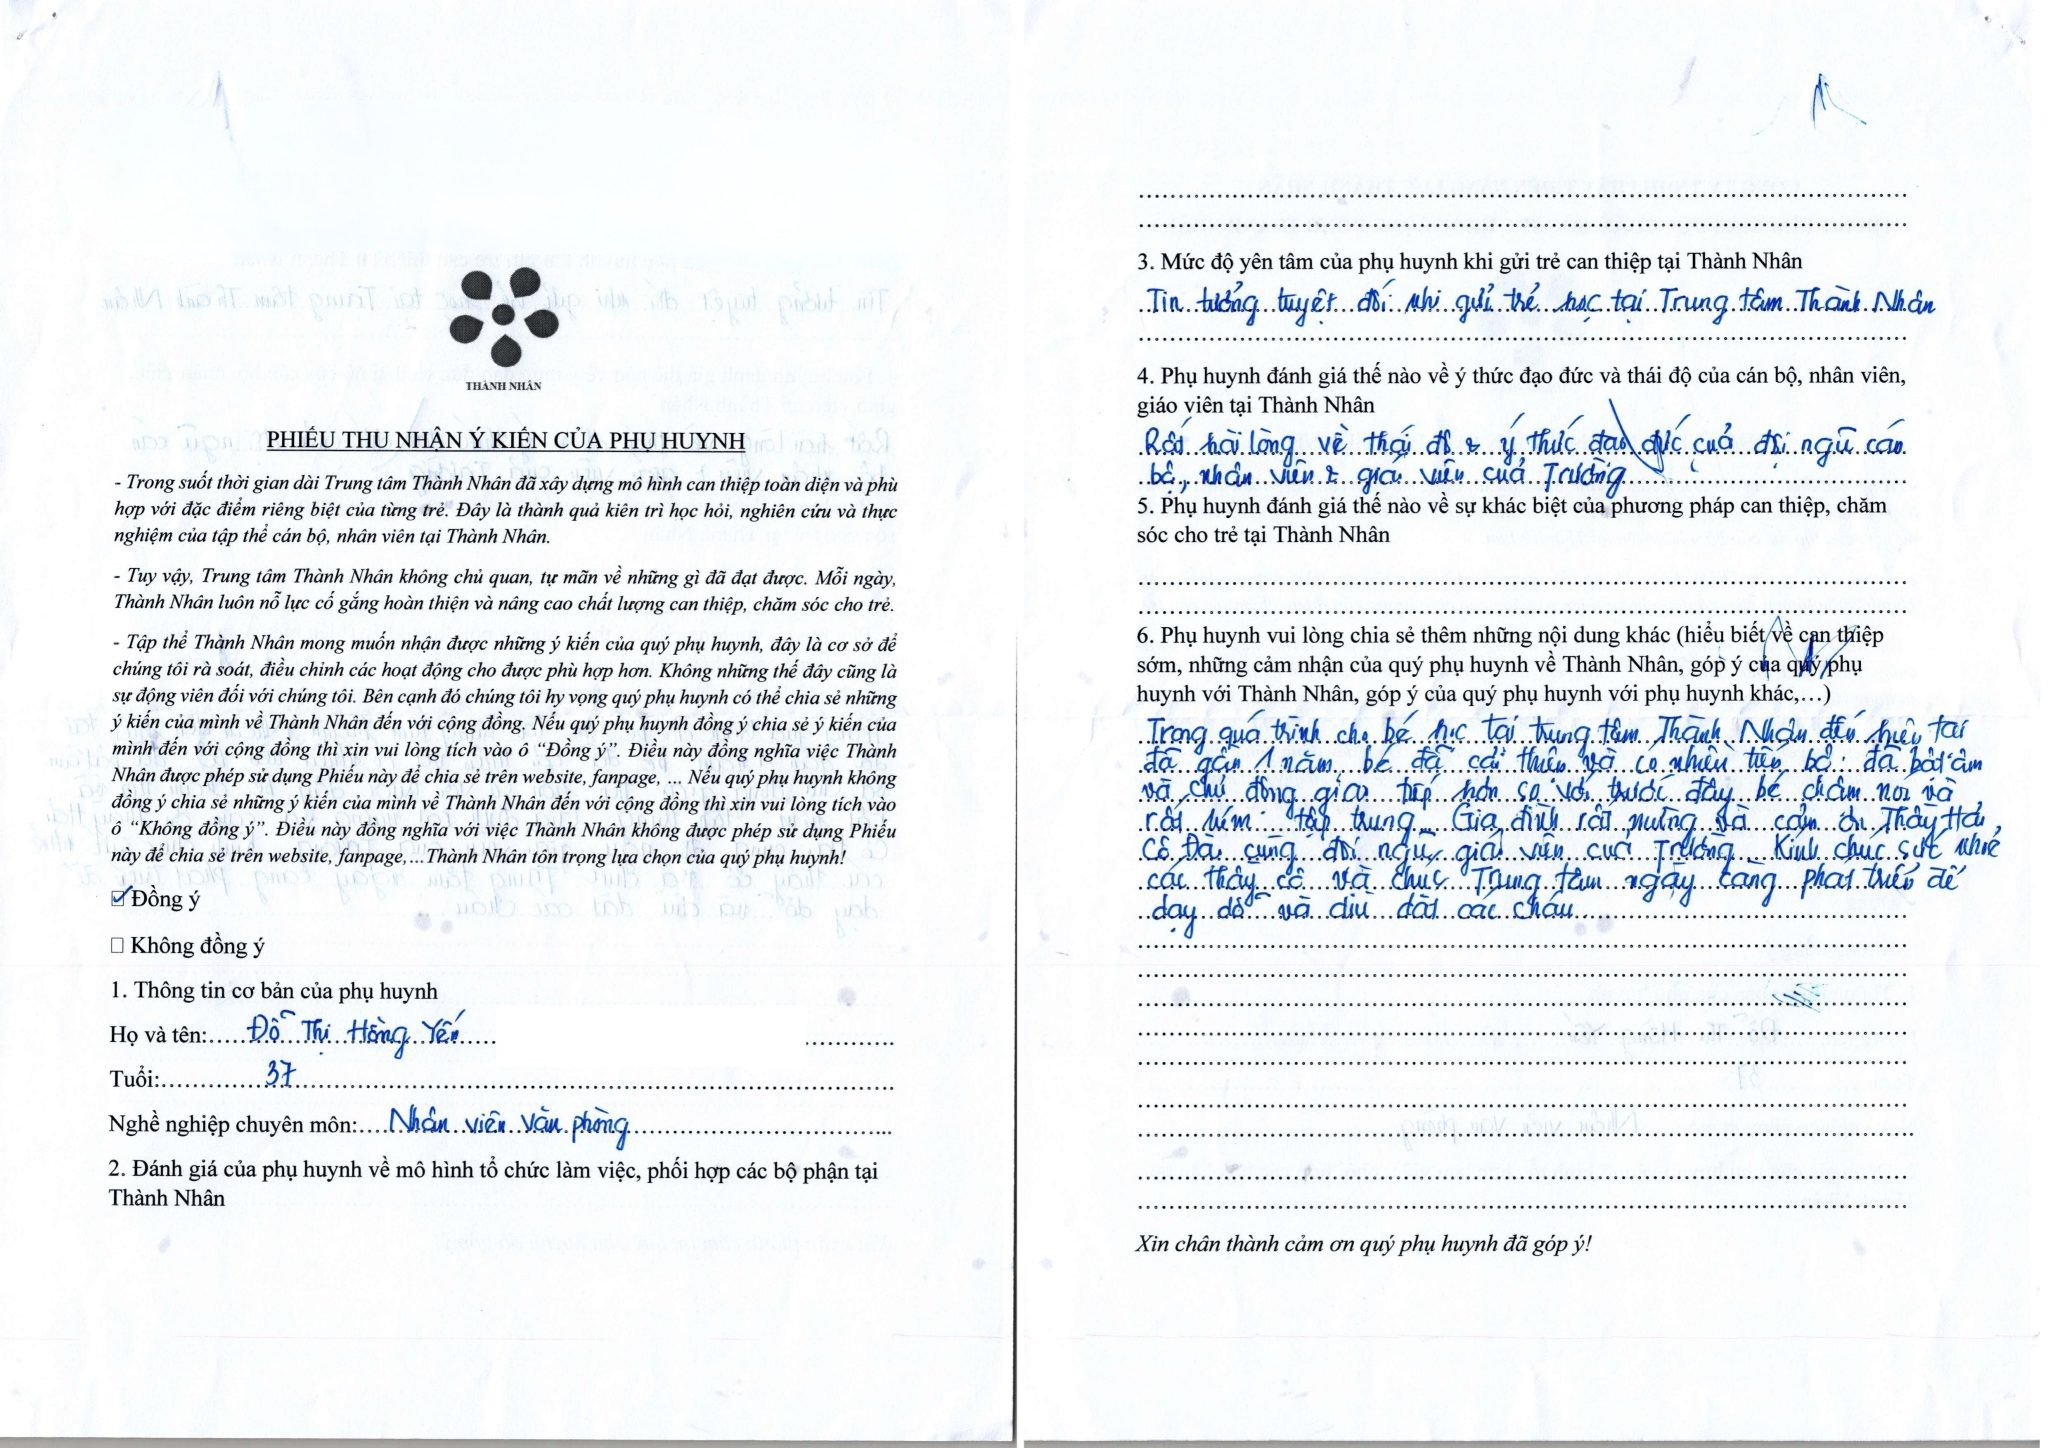 THÀNH NHÂN
PHIẾU THU NHẬN Ý KIẾN CỦA PHỤ HUYNH
- Trong suốt thời gian dài Trung tâm Thành Nhân đã xây dựng mô hình can thiệp toàn diện và phù
hợp với đặc điểm riêng biệt của từng trẻ. Đây là thành quả kiên trì học hỏi, nghiên cứu và thực
nghiệm của tập thể cán bộ, nhân viên tại Thành Nhân.
- Tuy vậy, Trung tâm Thành Nhân không chủ quan, tự mãn về những gì đã đạt được. Mỗi ngày,
Thành Nhân luôn nỗ lực cố gắng hoàn thiện và nâng cao chất lượng can thiệp, chăm sóc cho trẻ.
- Tập thể Thành Nhân mong muốn nhận được những ý kiến của quý phụ huynh, đây là cơ sở để
chúng tôi rà soát, điều chỉnh các hoạt động cho được phù hợp hơn. Không những thế đây cũng là
sự động viên đối với chúng tôi. Bên cạnh đó chúng tôi hy vọng quý phụ huynh có thể chia sẻ những
ý kiến của mình về Thành Nhân đến với cộng đồng. Nếu quý phụ huynh đồng ý chia sẻ ý kiến của
mình đến với cộng đồng thì xin vui lòng tích vào ô “Đồng ý”. Điều này đồng nghĩa việc Thành
Nhân được phép sử dụng Phiếu này để chia sẻ trên website, fanpage, ... Nếu quý phụ huynh không
đồng ý chia sẻ những ý kiến của mình về Thành Nhân đến với cộng đồng thì xin vui lòng tích vào
ô “Không đồng ý”. Điều này đồng nghĩa với việc Thành Nhân không được phép sử dụng Phiếu
này để chia sẻ trên website, fanpage,...Thành Nhân tôn trọng lựa chọn của quý phụ huynh!
☑ Đồng ý
☐ Không đồng ý
1. Thông tin cơ bản của phụ huynh
Họ và tên: Đỗ Thị Hồng Yến
Tuổi: 37
Nghề nghiệp chuyên môn: Nhân viên văn phòng
2. Đánh giá của phụ huynh về mô hình tổ chức làm việc, phối hợp các bộ phận tại
Thành Nhân
3. Mức độ yên tâm của phụ huynh khi gửi trẻ can thiệp tại Thành Nhân
Tin tưởng tuyệt đối khi gửi trẻ học tại Trung tâm Thành Nhân
4. Phụ huynh đánh giá thế nào về ý thức đạo đức và thái độ của cán bộ, nhân viên,
giáo viên tại Thành Nhân
Rất hài lòng về thái độ & ý thức đạo đức của đội ngũ cán
bộ, nhân viên & giáo viên của Trường
5. Phụ huynh đánh giá thế nào về sự khác biệt của phương pháp can thiệp, chăm
sóc cho trẻ tại Thành Nhân
6. Phụ huynh vui lòng chia sẻ thêm những nội dung khác (hiểu biết về can thiệp
sớm, những cảm nhận của quý phụ huynh về Thành Nhân, góp ý của quý phụ
huynh với Thành Nhân, góp ý của quý phụ huynh với phụ huynh khác,…)
Trong quá trình cho bé học tại trung tâm Thành Nhân đến hiện tại
đã gần 1 năm, bé đã cải thiện và có nhiều tiến bộ: đã bật âm
và chủ động giao tiếp hơn so với trước đây bé chậm nói và
rất kém tập trung. Gia đình rất mừng và cảm ơn Thầy Hải
Cô Đài cùng đội ngũ giáo viên của Trường. Kính chúc sức khỏe
các thầy cô và chúc Trung tâm ngày càng phát triển để
dạy dỗ và dìu dắt các cháu
Xin chân thành cảm ơn quý phụ huynh đã góp ý!